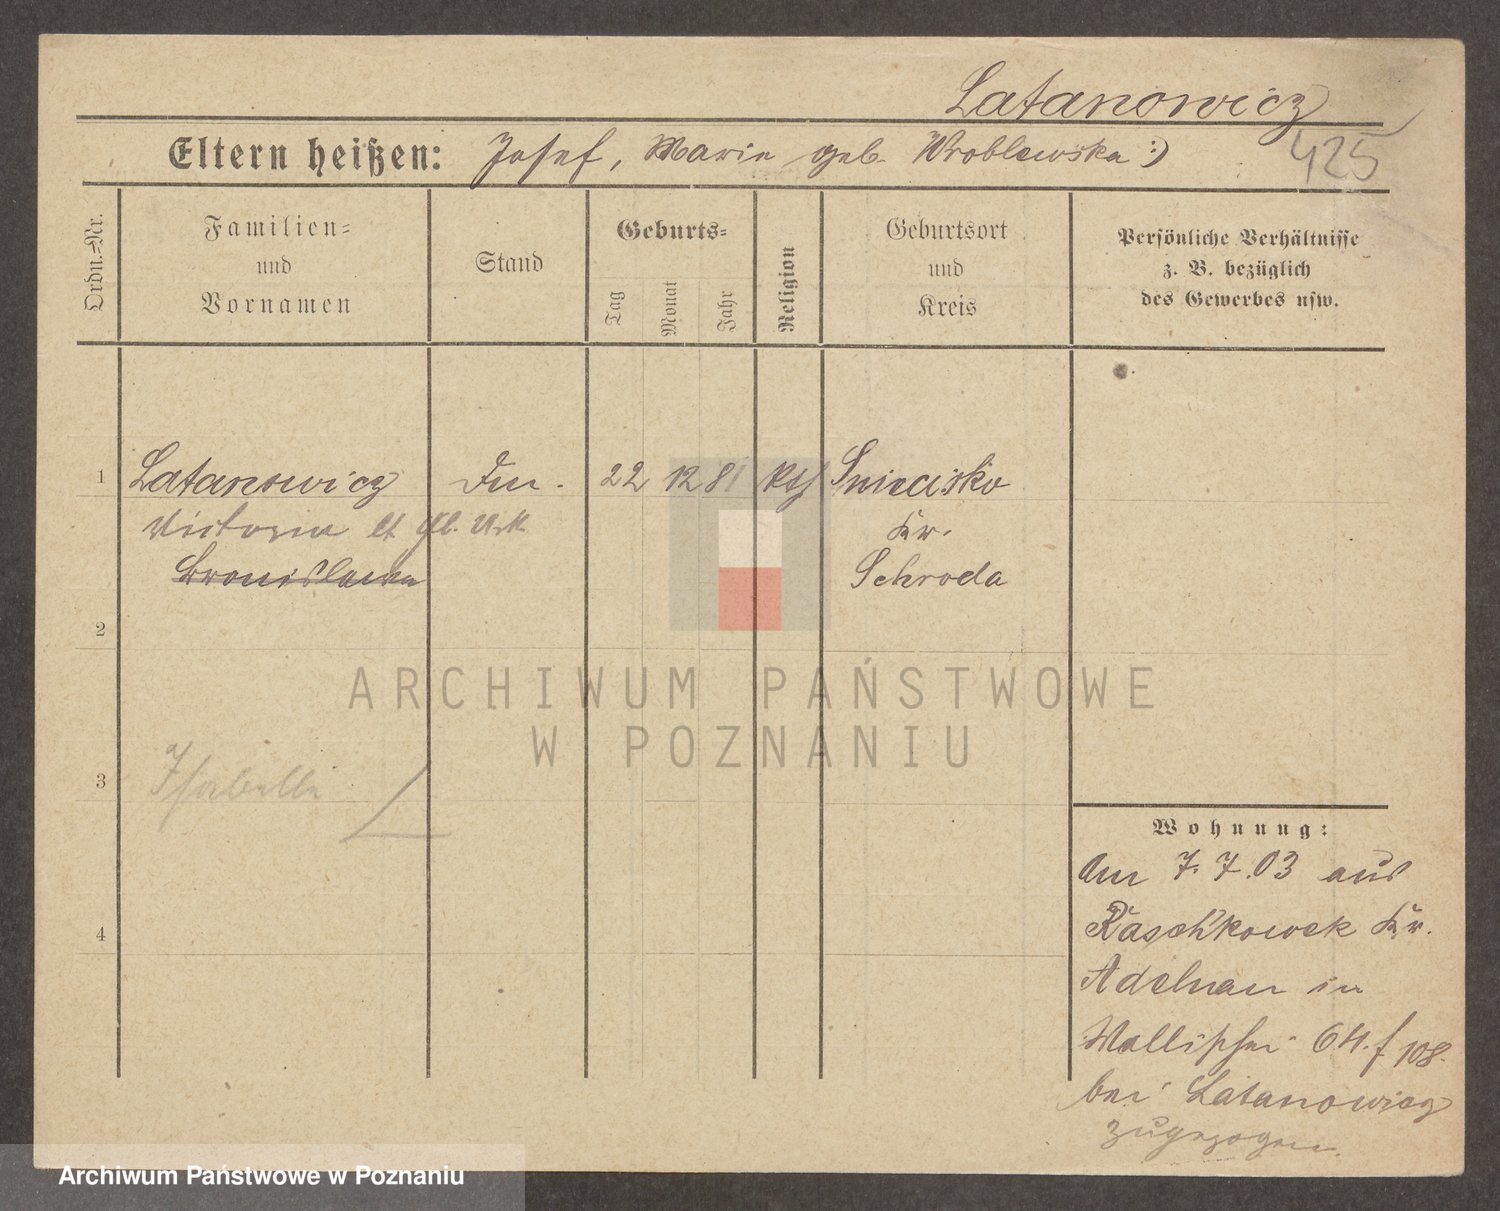 Latanowicz
425
Eltern heißen: Josef, Maria geb. Wroblewska :)
Ordn.=Nr.
Familien=
und
Vornamen
Stand
Geburts=
Tag
Monat
Jahr
Religion
Geburtsort
und
Kreis
Persönliche Verhältnisse
z. B. bezüglich
des Gewerbes usw.
1 Latanowicz 22 12 81 kth Sniecisko
Victoria lt Gb. Urk. Kr.
Bronislawa Schroda
2
ARCHIWUM PAŃSTWOWE
W POZNANIU
3 Isabella
4
Wohnung:
Am 7.7.03 aus
Raschkowek Kr.
Adelnau in
64.
bei Latanowicz
zugezogen.
Archiwum Państwowe w Poznaniu